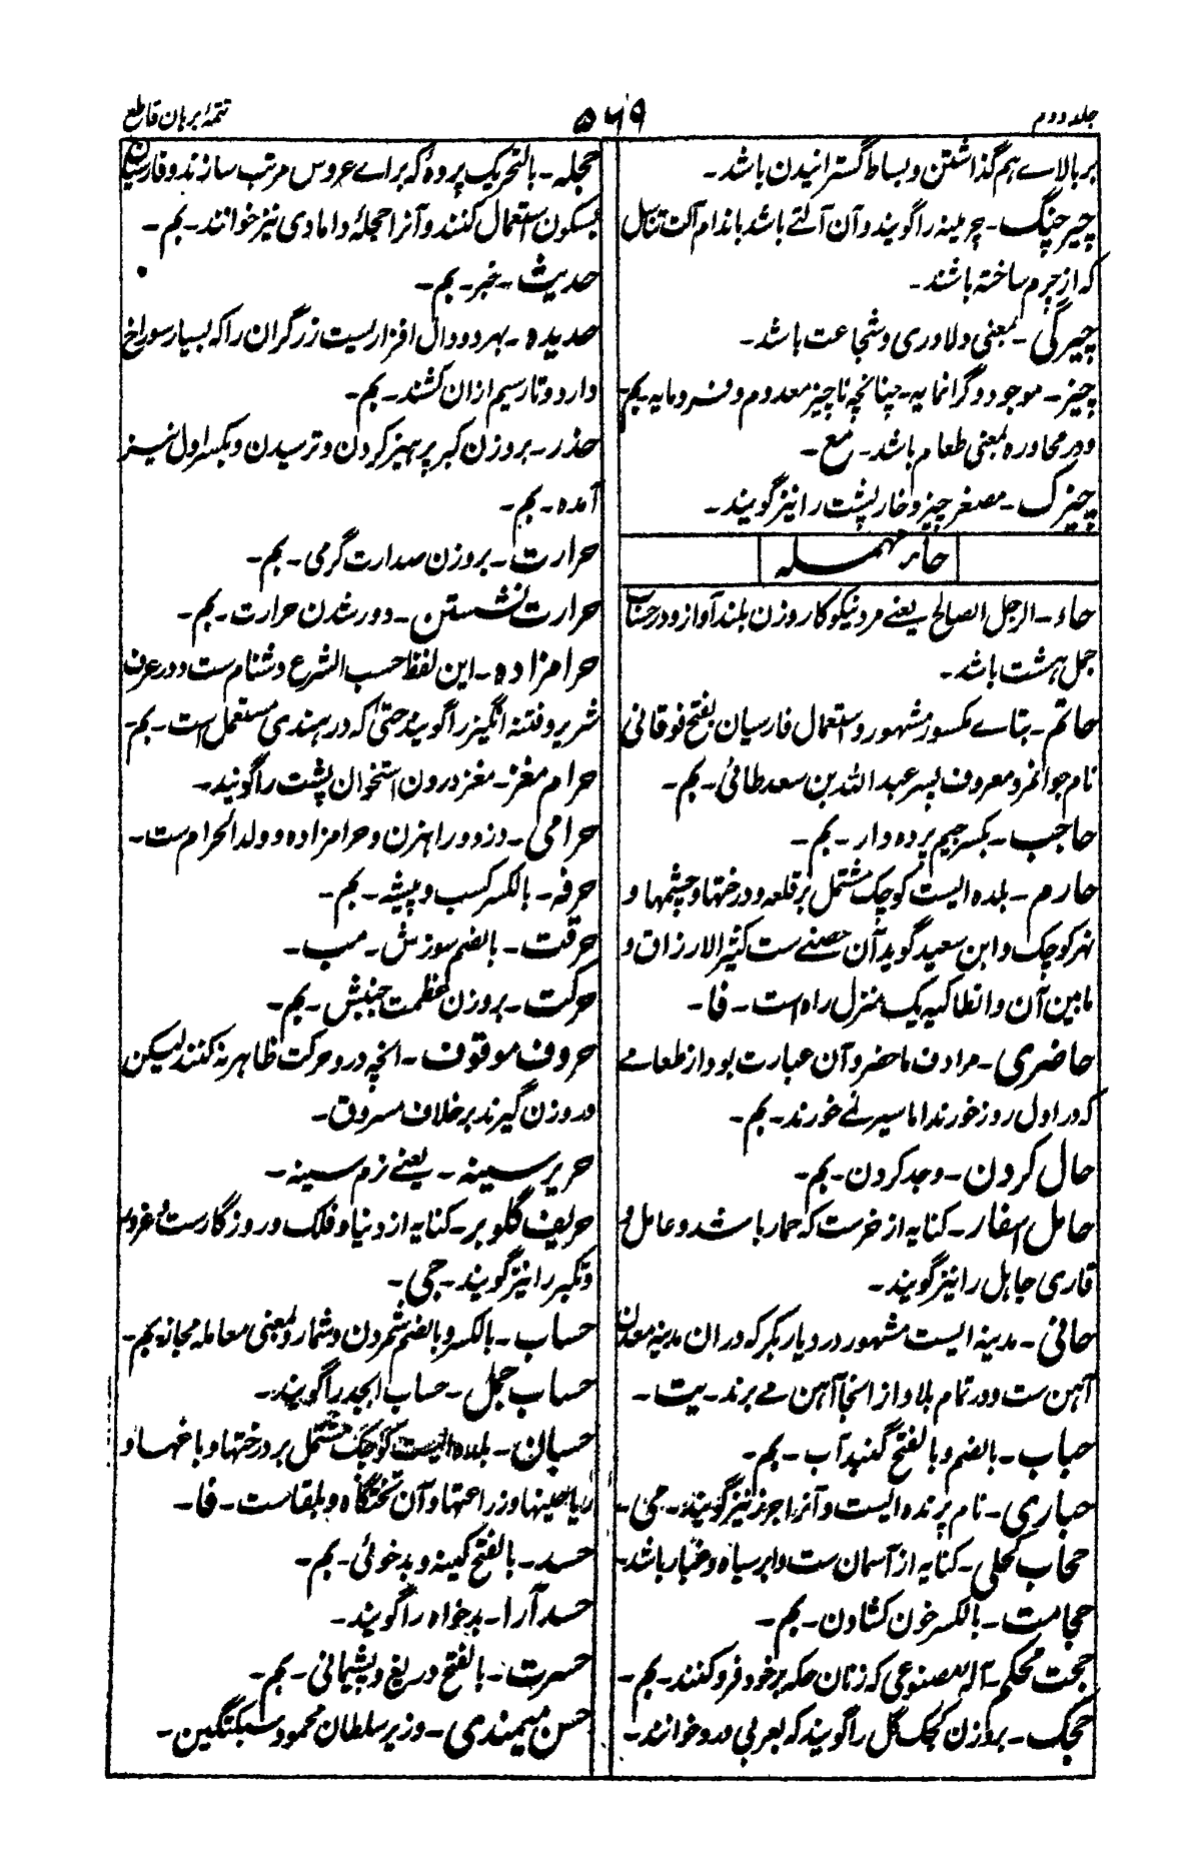 جلد دوم
۵۶۹
تتمهٔ برہان قاطع
بر بالاے ہم گذاشتن و بساط گسترانیدن باشد۔
چیرچنگ۔ چرمینہ را گویند و آن آلتے باشد باندام آلت تناسل
کہ از چرم ساختہ باشند۔
چیرگی۔ بمعنی دلاوری و شجاعت باشد۔
چیز۔ موجود و گرانمایہ۔ چنانچہ ناچیز معدوم و فرومایہ۔ بم
و در محاورہ بمعنی طعام باشد۔ مع۔
چیزک۔ مصغر چیز و خارپشت را نیز گویند۔
حاء مہملہ
حاء۔ الرجل الصالح یعنے مرد نیکو کار وزن بلند آواز و در حساب
جمل ہشت باشد۔
حاتم۔ بتاے مکسور مشہور و استعمال فارسیان بفتح فوقانی
نام جوانمرد معروف پسر عبد اللہ بن سعد طائی۔ بم۔
حاجب۔ بکسر جیم پردہ دار۔ بم۔
حارم۔ بلدہ ایست کوچک مشتمل بر قلعہ و درختہا و چشمہا و
نہر کوچک و ابن سعید گوید آن حصنے ست کثیر الارزاق و
مابین آن و انطاکیہ یک منزل راہ است۔ فا۔
حاضری۔ مرادف ماحضر و آن عبارت بود از طعامے
کہ در اول روز خورند اما سیر نے خورند۔ بم۔
حال کردن۔ وجد کردن۔ بم۔
حامل اسفار۔ کنایہ از خرست کہ حمار باشد و عامل و
قاری جاہل را نیز گویند۔
حانی۔ مدینہ ایست مشہور در دیار بکر کہ در ان مدینہ معدن
آہن ست و در تمام بلاد از انجا آہن مے برند۔ یت۔
حباب۔ بالضم و بالفتح گنبد آب۔ بم۔
حباری۔ نام پرندہ ایست و آنرا جرز نیز گویند۔ می۔
حجاب کحلی۔ کنایہ از آسمان ست و ابر سیاہ و غبار باشد۔
حجامت۔ بالکسر خون کشادن۔ بم۔
حجت محکم۔ آلہ مصنوعی کہ زنان حکہ بر خود فرو کنند۔ بم۔
حجک۔ بر وزن کچک گل را گویند کہ بعربی ورد خوانند۔
حجلہ۔ بالتحریک پردہ کہ براے عروس مرتب سازند و فارسیان
بسکون استعمال کنند و آنرا حجلۂ دامادی نیز خوانند۔ بم۔
حدیث۔ خبر۔ بم۔
حدیدہ۔ بہر دو دال افزاریست زرگران را کہ بسیار سوراخ
دارد و تار سیم ازان کشند۔ بم۔
حذر۔ بروزن کبر پرہیز کردن و ترسیدن و بکسر اول نیز
آمدہ۔ بم۔
حرارت۔ بروزن صدارت گرمی۔ بم۔
حرارت نشستن۔ دور شدن حرارت۔ بم۔
حرامزادہ۔ این لفظ حسب الشرع دشنام ست و در عرف
شریر و فتنہ انگیز را گویند حتی کہ در ہندی مستعمل است۔ بم۔
حرام مغز۔ مغز درون استخوان پشت را گویند۔
حرامی۔ دزد و راہزن و حرامزادہ و ولد الحرام ست۔
حرفہ۔ بالکسر کسب و پیشہ۔ بم۔
حرقت۔ بالضم سوزش۔ مب۔
حرکت۔ بروزن عظمت جنبش۔ بم۔
حروف موقوف۔ انچہ در و حرکت ظاہر نہ کنند لیکن
در وزن گیرند بر خلاف مسروق۔
حریر سینہ۔ یعنے نرم سینہ۔
حریف گلوبر۔ کنایہ از دنیا و فلک و روزگارست و غرور
و تکبر را نیز گویند۔ جی۔
حساب۔ بالکسر و بالضم شمردن و شمار و بمعنی معاملہ مجاز۔ بم۔
حساب جمل۔ حساب ابجد را گویند۔
حسبان۔ بلدہ ایست کوچک مشتمل بر درختہا و باغہا و
ریاحینہا و زراعتہا و آن تختگاہ و بلقاست۔ فا۔
حسد۔ بالفتح کینہ و بدخوئی۔ بم۔
حسد آرا۔ بدخواہ را گویند۔
حسرت۔ بالفتح دریغ و پشیمانی۔ بم۔
حسن میمندی۔ وزیر سلطان محمود سبکتگین۔